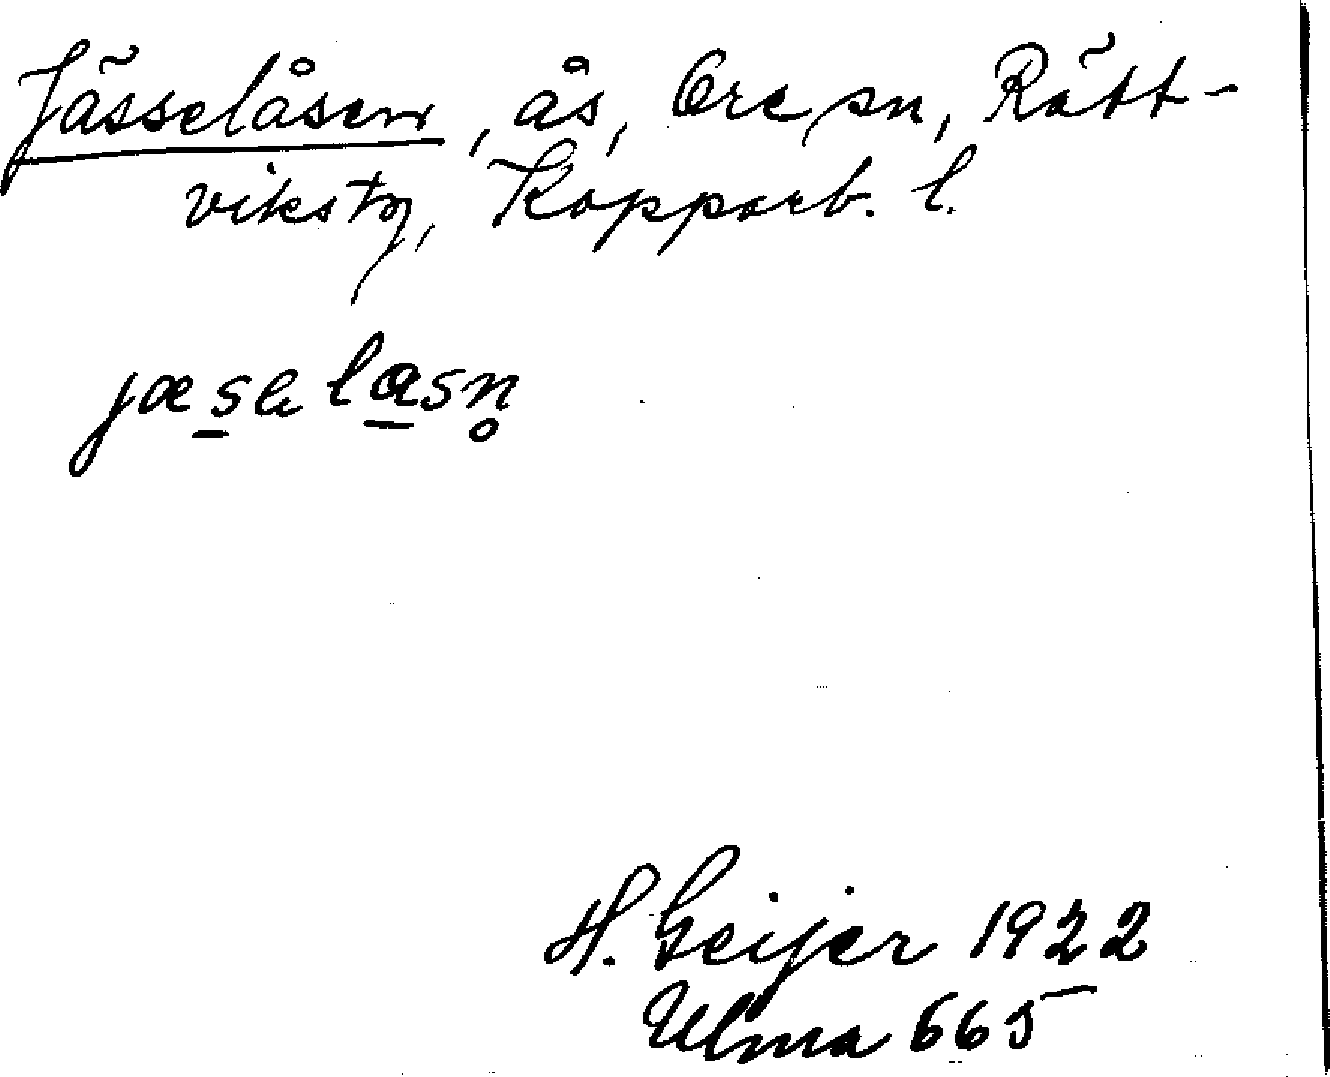 Jässelåsen, ås, Ore sn, Rätt-
vikstg, Kopparb. l.
jæs̲elɑ̲sn̥
H. Geijer 1922
Ulma 665